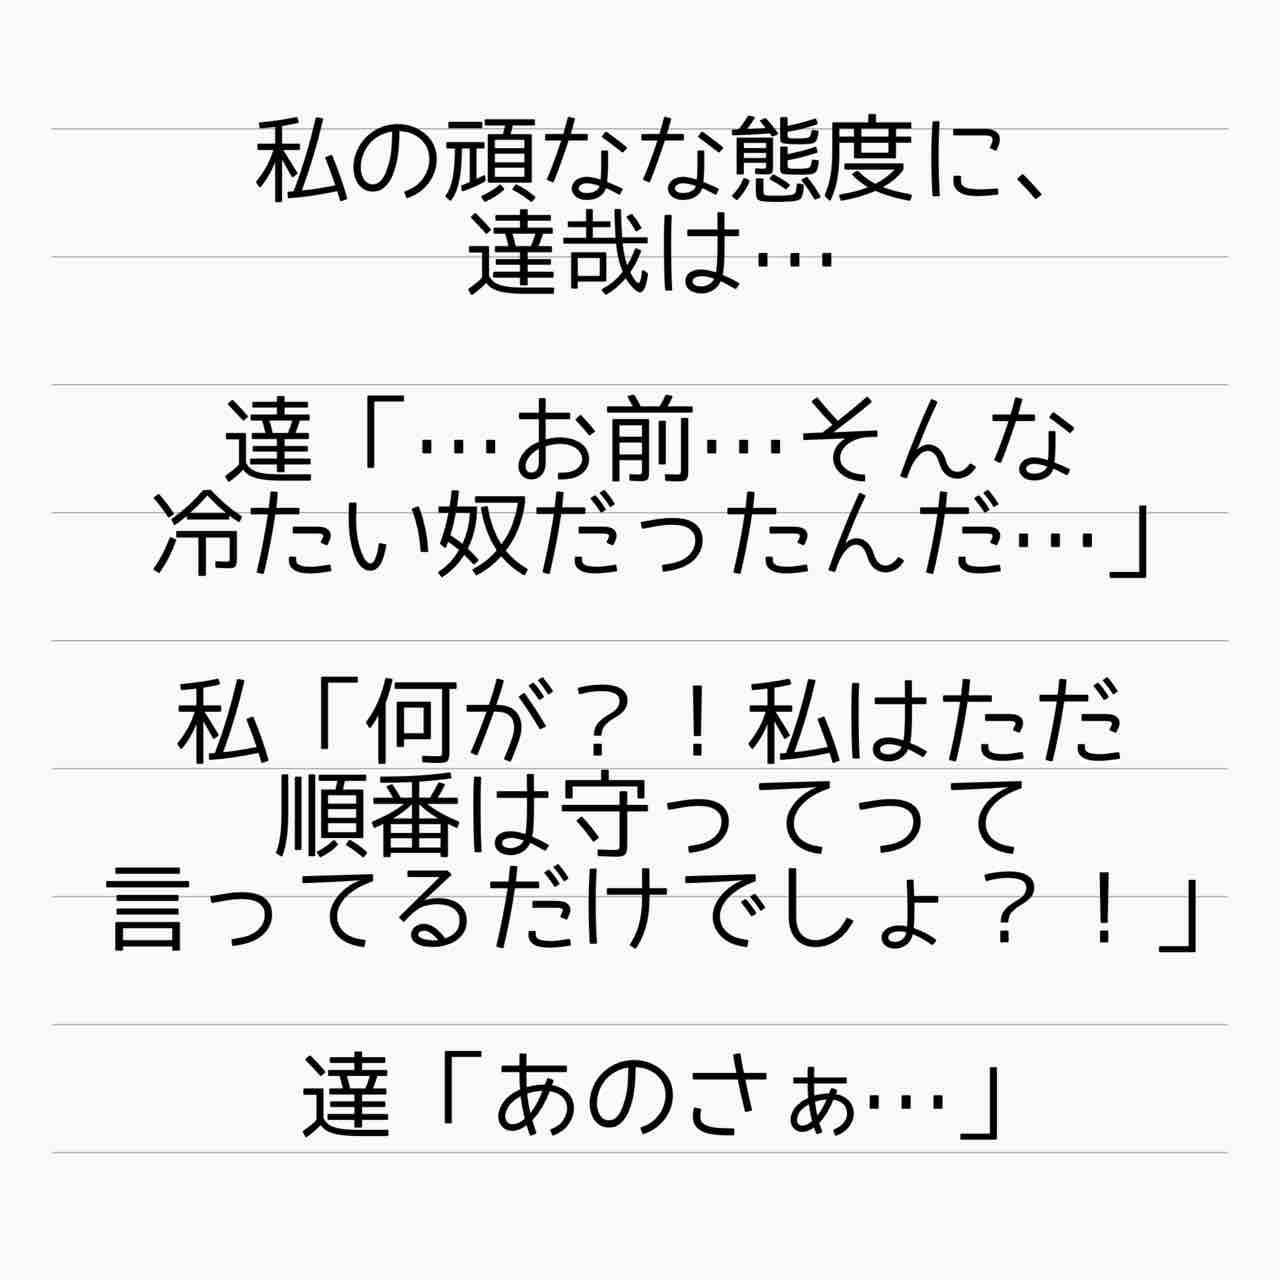 私の頑なな態度に、
達哉は…
達「…お前…そんな
冷たい奴だったんだ…」
私「何が？！私はただ
順番は守ってって
言ってるだけでしょ？！」
達「あのさぁ…」